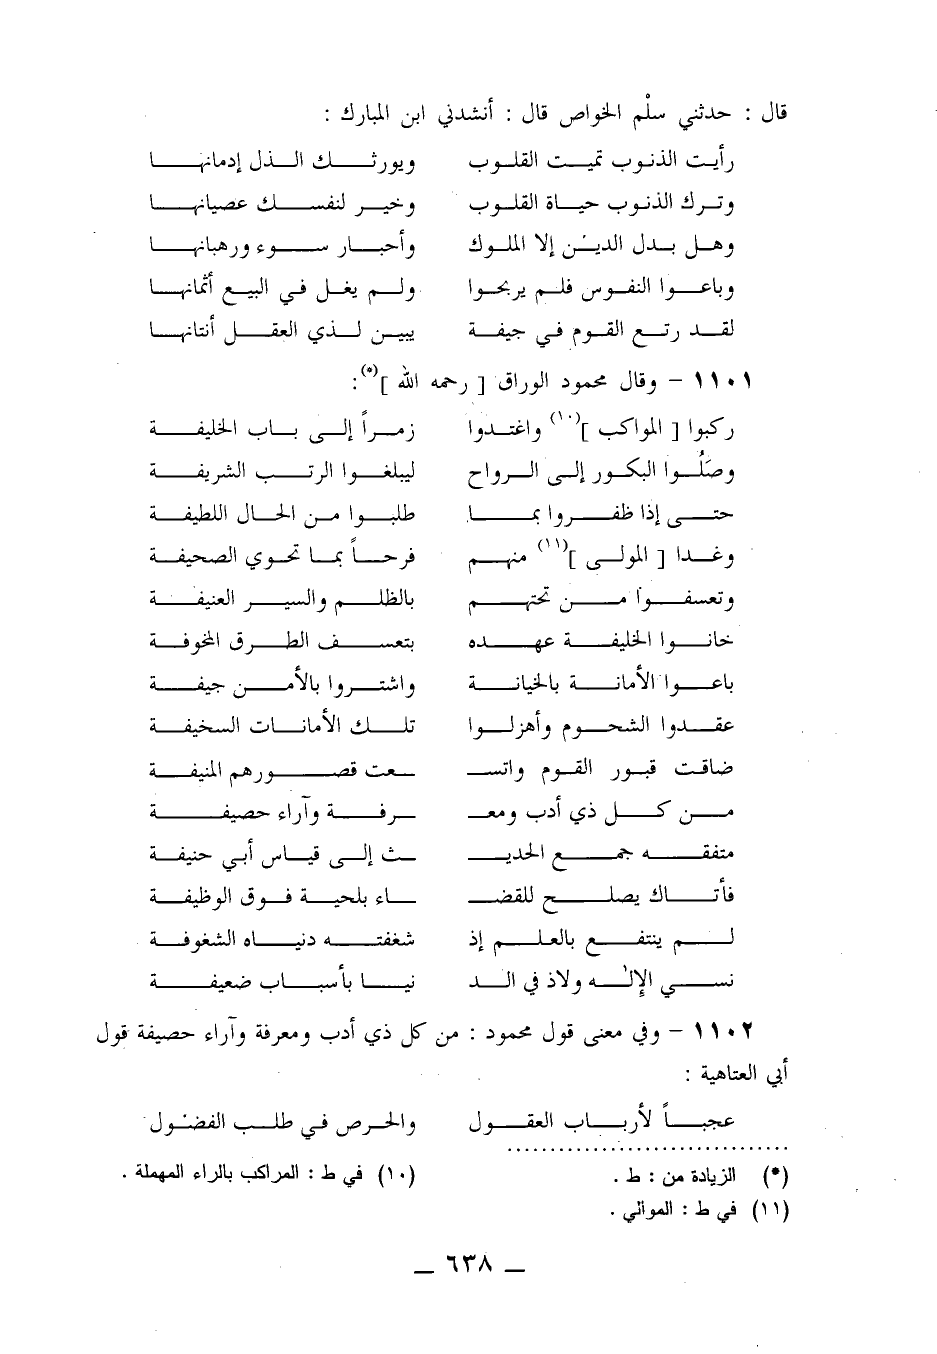 قال : حدثني سلْم الخواص قال : أنشدني ابن المبارك :
رأيت الذنوب تميت القلوب ويورثك الذل إدمانها
وترك الذنوب حياة القلوب وخير لنفسك عصيانها
وهل بدل الدين إلا الملوك وأحبار سوء ورهبانها
وباعوا النفوس فلم يربحوا ولم يغل في البيع أثمانها
لقد رتع القوم في جيفة يبين لذي العقل أنتانها
١١٠١ – وقال محمود الوراق [ رحمه الله ](*):
ركبوا [ المواكب ](١٠) واغتدوا زمراً إلى باب الخليفة
وصلُوا البكور إلى الرواح ليبلغوا الرتب الشريفة
حتى إذا ظفروا بما طلبوا من الحال اللطيفة
وغدا [ المولى ](١١) منهم فرحاً بما تحوي الصحيفة
وتعسفوا من تحتهم بالظلم والسير العنيفة
خانوا الخليفة عهده بتعسف الطرق المخوفة
باعوا الأمانة بالخيانة واشتروا بالأمن جيفة
عقدوا الشحوم وأهزلوا تلك الأمانات السخيفة
ضاقت قبور القوم واتسـ ـعت قصورهم المنيفة
من كل ذي أدب ومعـ ـرفة وآراء حصيفة
متفقه جمع الحديـ ـث إلى قياس أبي حنيفة
فأتاك يصلح للقضـ ـاء بلحية فوق الوظيفة
لم ينتفع بالعلم إذ شغفته دنياه الشغوفة
نسي الإله ولاذ في الد نيا بأسباب ضعيفة
١١٠٢ – وفي معنى قول محمود : من كل ذي أدب ومعرفة وآراء حصيفة قول
أبي العتاهية :
عجباً لأرباب العقول والحرص في طلب الفضول
(*) الزيادة من : ط . (١٠) في ط : المراكب بالراء المهملة .
(١١) في ط : الموالي .
ــ ٦٣٨ ــ